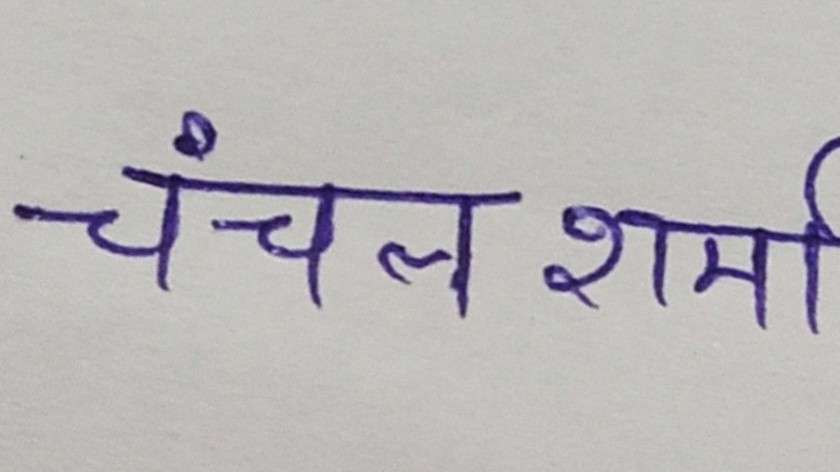 चंचल शर्मा